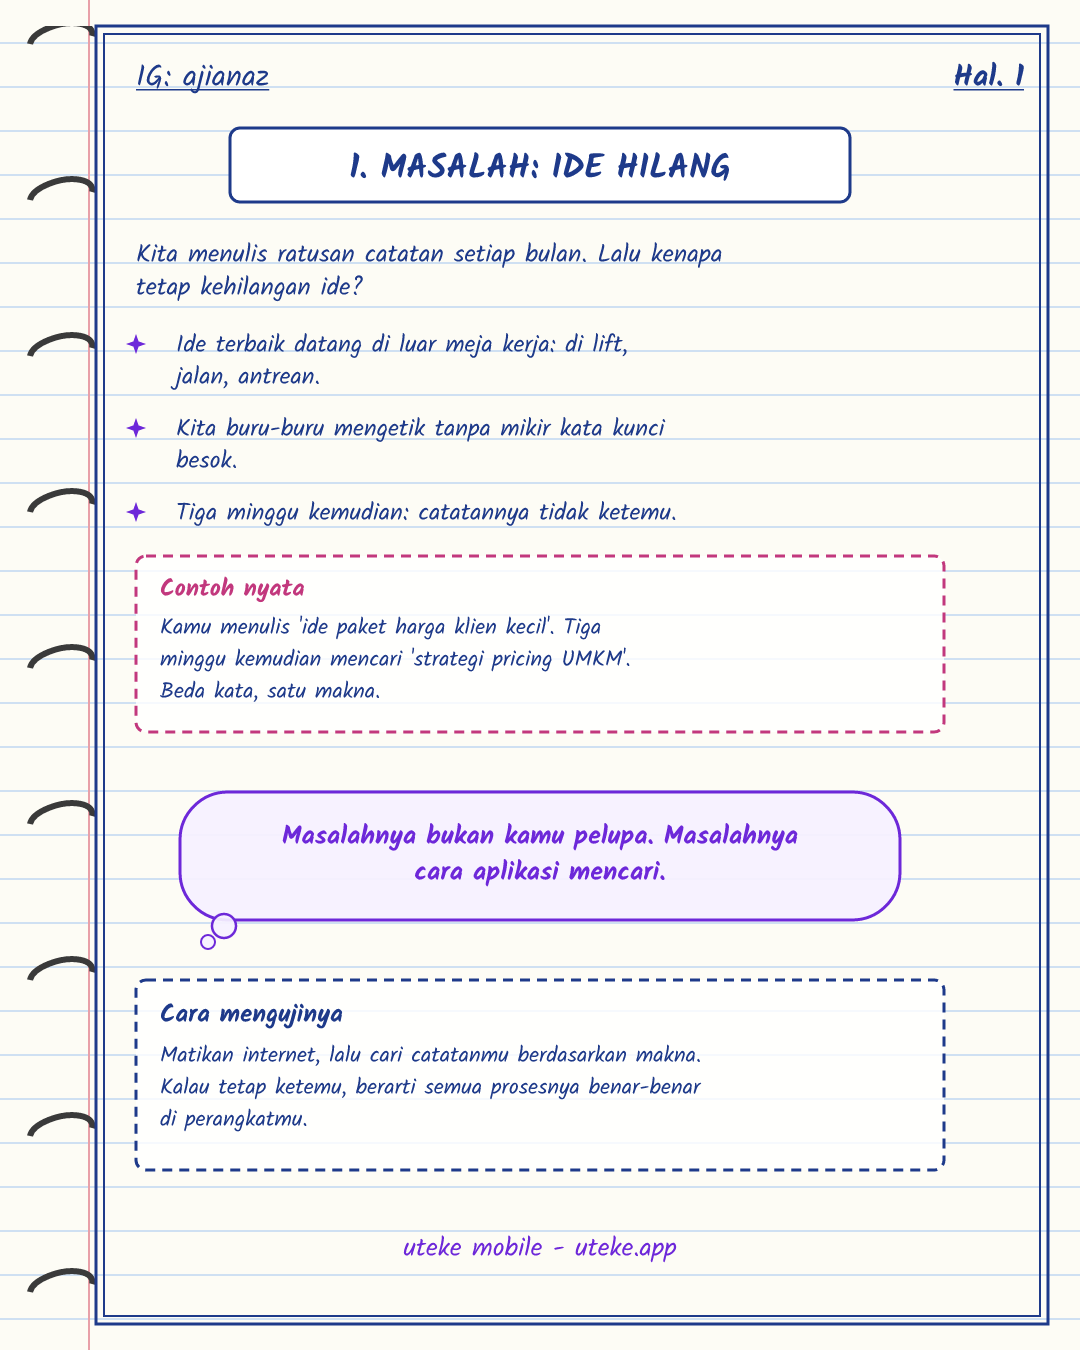 IG: ajianaz
Hal. 1
1. MASALAH: IDE HILANG
Kita menulis ratusan catatan setiap bulan. Lalu kenapa
tetap kehilangan ide?
Ide terbaik datang di luar meja kerja: di lift,
jalan, antrean.
Kita buru-buru mengetik tanpa mikir kata kunci
besok.
Tiga minggu kemudian: catatannya tidak ketemu.
Contoh nyata
Kamu menulis 'ide paket harga klien kecil'. Tiga
minggu kemudian mencari 'strategi pricing UMKM'.
Beda kata, satu makna.
Masalahnya bukan kamu pelupa. Masalahnya
cara aplikasi mencari.
Cara mengujinya
Matikan internet, lalu cari catatanmu berdasarkan makna.
Kalau tetap ketemu, berarti semua prosesnya benar-benar
di perangkatmu.
uteke mobile - uteke.app